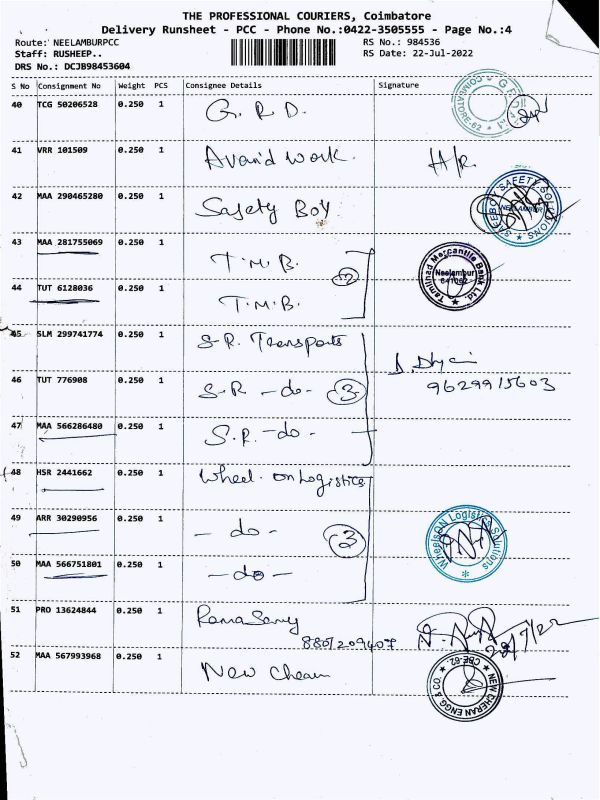 THE PROFESSIONAL COURIERS, Coimbatore
Delivery Runsheet - PCC - Phone No.:0422-3505555 - Page No.:4
Route: NEELAMBURPCC RS No.: 984536
Staff: RUSHEEP.. RS Date: 22-Jul-2022
DRS No.: DCJB98453604
S No Consignment No Weight PCS Consignee Details Signature
40 TCG 50206528 0.250 1 G. R. D.
41 VRR 101509 0.250 1 work. H/R
42 MAA 290465280 0.250 1 Safety Boy
SAFEBOY SAFETY SOLUTIONS NEELAMBUR
43 MAA 281755069 0.250 1 T.M.B. 2
Tamilnad Mercantile Bank Ltd. Neelambur 641062
44 TUT 6128036 0.250 1 T.M.B.
45 SLM 299741774 0.250 1 S-R. Transports
46 TUT 776908 0.250 1 S-R -do- 3 9629915603
47 MAA 566286480 0.250 1 S.R. -do-
48 HSR 2441662 0.250 1 Wheel. on Logistics
49 ARR 30290956 0.250 1 -do- 3
WheelsON Logistics Solutions
50 MAA 566751801 0.250 1 -do-
51 PRO 13624844 0.250 1 RamaSamy 8807209407 22/7/22
52 MAA 567993968 0.250 1 New Cheran
NEW CHERAN ENGG. & CO. CBE-62